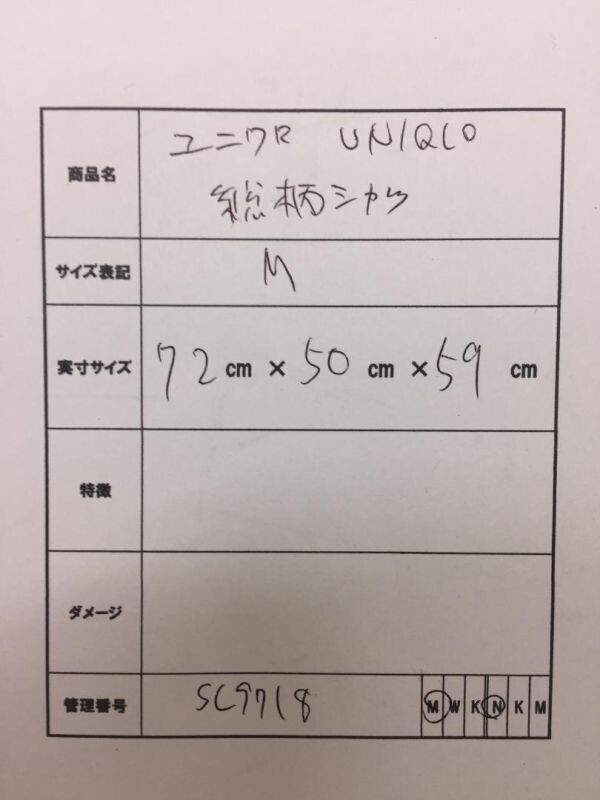 商品名 ユニクロ UNIQLO
総柄シャツ
サイズ表記 M
実寸サイズ 72 cm × 50 cm × 59 cm
特徴
ダメージ
管理番号 SC9718 M W K N K M